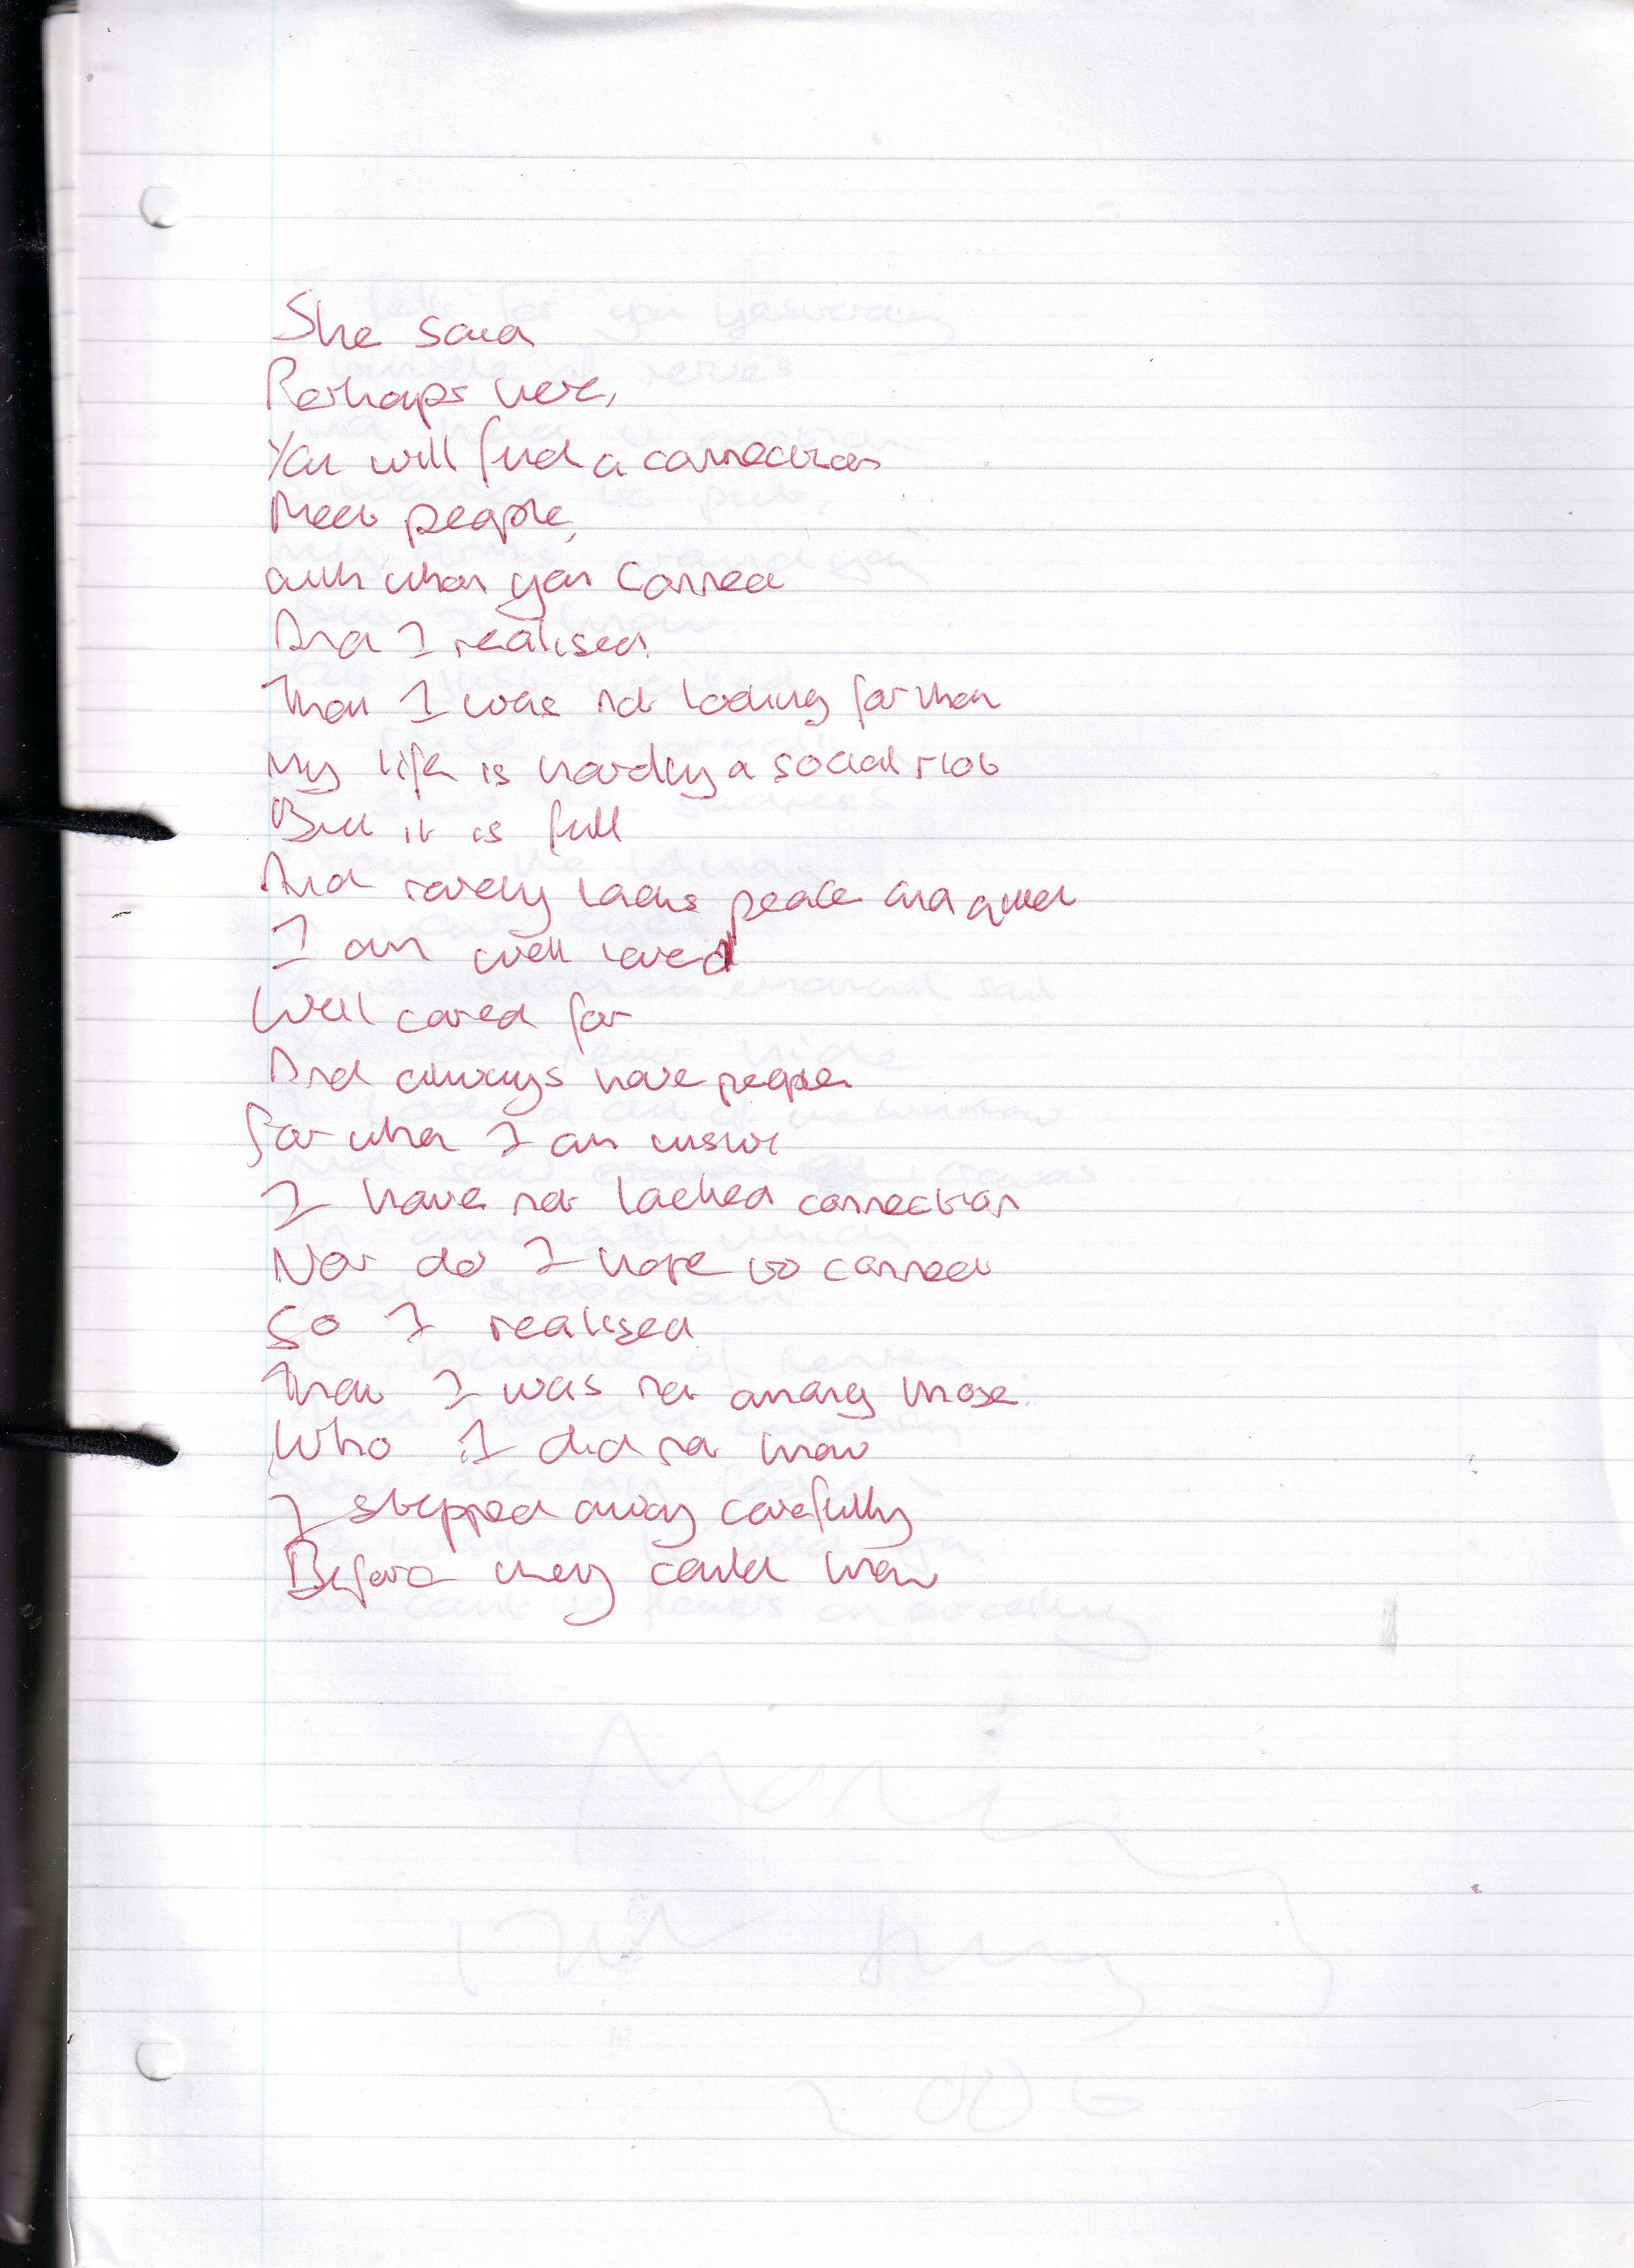 She said
Perhaps here,
You will find a connection
Meet people,
with whom you connect
And I realised
That I was not looking for them
My life is hardly a social riot
But it is full
And rarely lacks peace and quiet
I am well loved
Well cared for
And always have people
For who I am
I have not lacked connection
Nor do I hope to connect
So I realised
That I was not among those
Who I did not know
I stepped away carefully
Before they could know